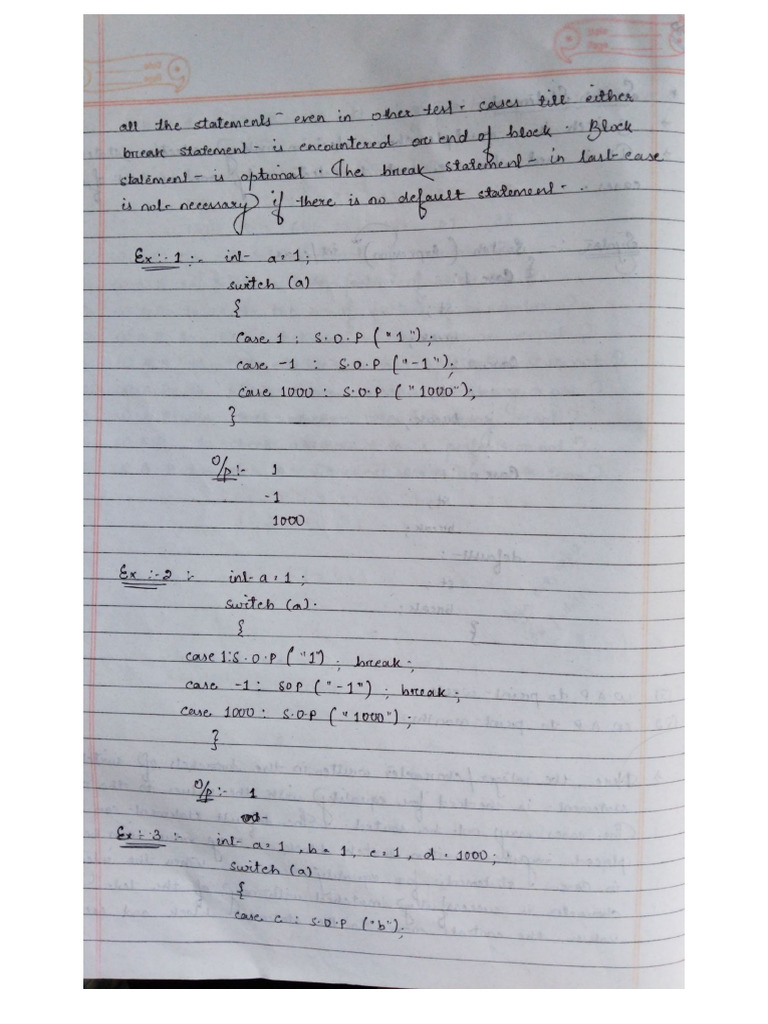 all the statements even in other test cases till either
break statement is encountered or end of block. Block
statement is optional. The break statement in last case
is not necessary if there is no default statement.
Ex:-1:- int a=1;
switch (a)
{
case 1 : S.O.P ("1");
case -1 : S.O.P ("-1");
case 1000 : S.O.P ("1000");
}
O/p:- 1
-1
1000
Ex:-2 :- int a=1;
switch (a).
{
case 1:S.O.P ("1") ; break;
case -1: SOP ("-1") ; break;
case 1000: S.O.P ("1000");
}
O/p:- 1
Ex:-3 :- int a=1, b=1, c=1, d=1000;
switch (a)
{
case c : S.O.P ("b");